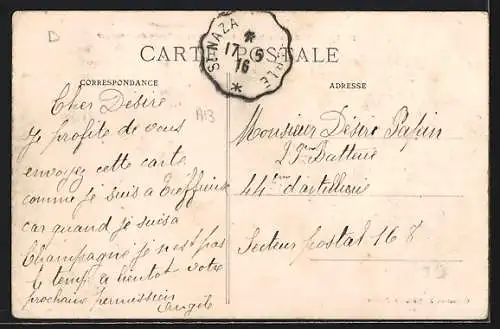 D
CARTE POSTALE
St NAZA
17-5
16
CORRESPONDANCE
ADRESSE
Cher Désiré
A13
Je profite de vous
envoyez cette carte
comme je suis a
car quand je suis a
Champagné je n'est pas
le temp a bientot votre
prochain permission
Angèle
Monsieur Désiré Papin
25me Batterie
44ème d'artillerie
Secteur postal 168